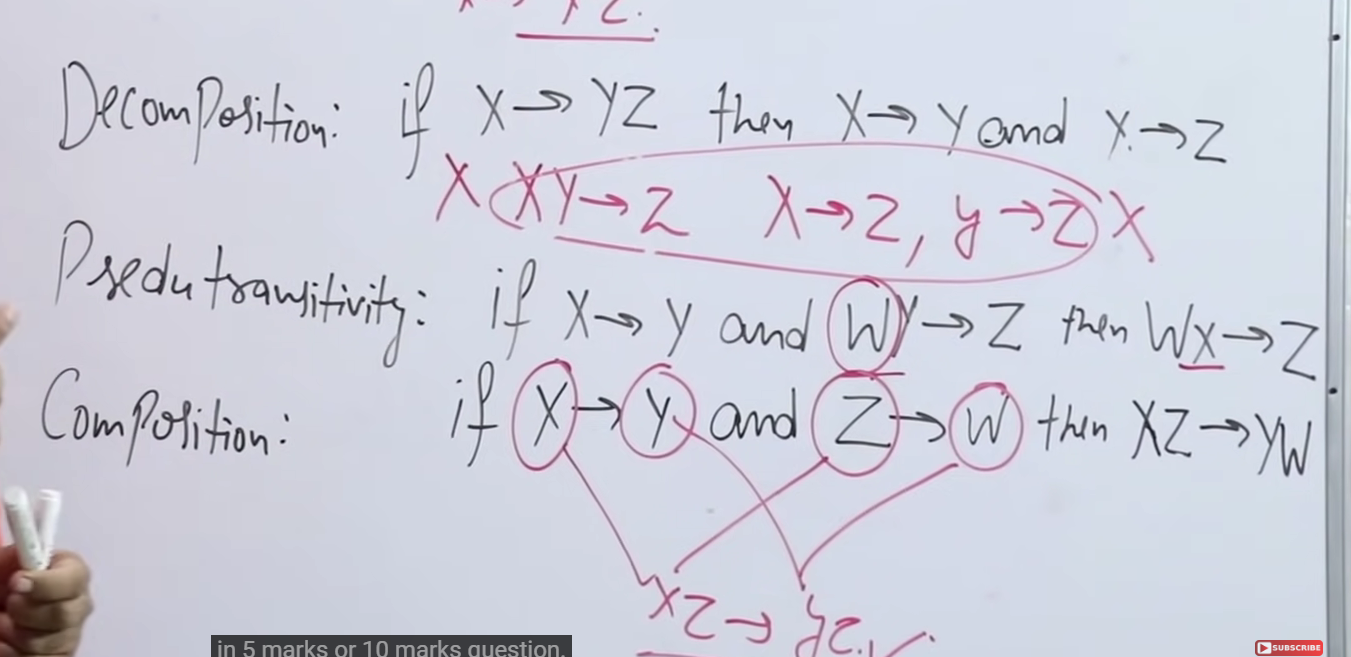 Decomposition: if X→YZ then X→Y and X→Z
X XY→Z X→Z, y→Z X
Psedutransitivity: if X→Y and WY→Z then WX→Z
Composition: if X→Y and Z→W then XZ→YW
XZ→yz.
in 5 marks or 10 marks question.
SUBSCRIBE